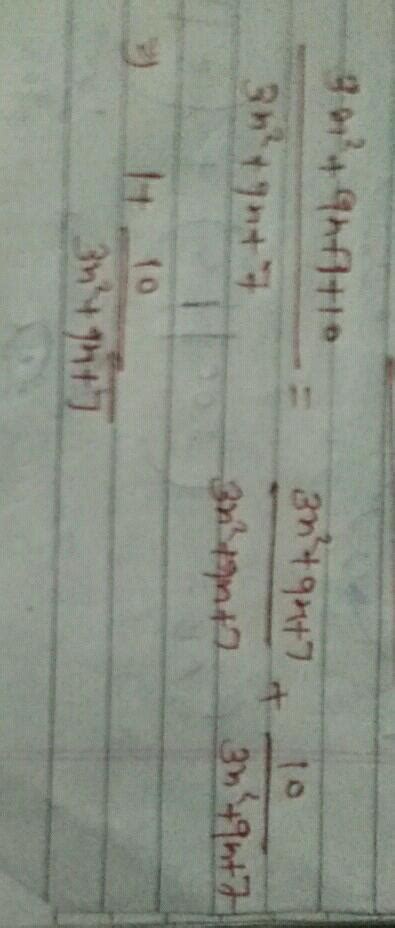 3x² + 9x + 7 + 10 / 3x² + 9x + 7 = 3x² + 9x + 7 / 3x² + 9x + 7 + 10 / 3x² + 9x + 7
⇒ 1 + 10 / 3x² + 9x + 7